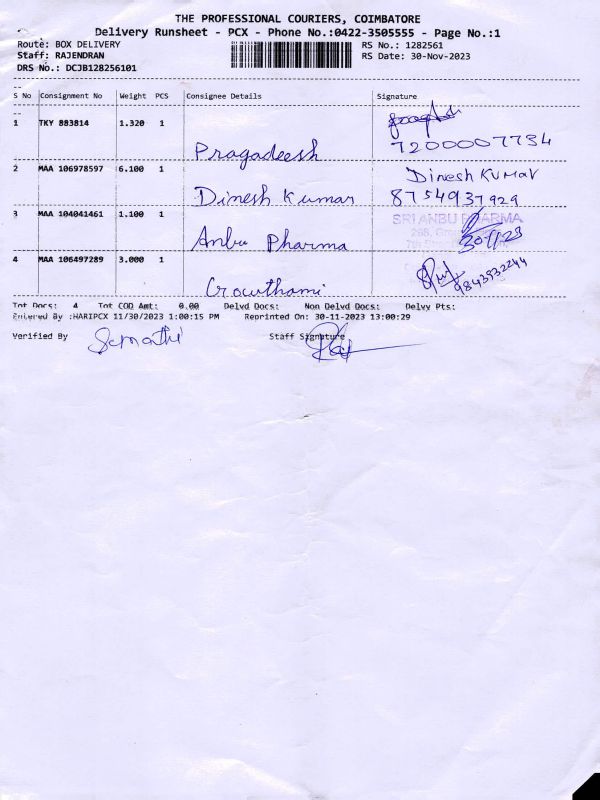 THE PROFESSIONAL COURIERS, COIMBATORE
Delivery Runsheet - PCX - Phone No.:0422-3505555 - Page No.:1
Route: BOX DELIVERY RS No.: 1282561
Staff: RAJENDRAN RS Date: 30-Nov-2023
DRS No.: DCJB128256101
S No Consignment No Weight PCS Consignee Details Signature
1 TKY 883814 1.320 1
Pragadeesh 7200007734
2 MAA 106978597 6.100 1 Dinesh Kumar
Dinesh Kumar 8754937929
3 MAA 104041461 1.100 1 SRI ANBU PHARMA
Anbu Pharma 30/1/23
4 MAA 106497289 3.000 1 9843932244
Gowthami
Tot Docs: 4 Tot COD Amt: 0.00 Delvd Docs: Non Delvd Docs: Delvy Pts:
Entered By :HARIPCX 11/30/2023 1:00:15 PM Reprinted On: 30-11-2023 13:00:29
Verified By Staff Signature